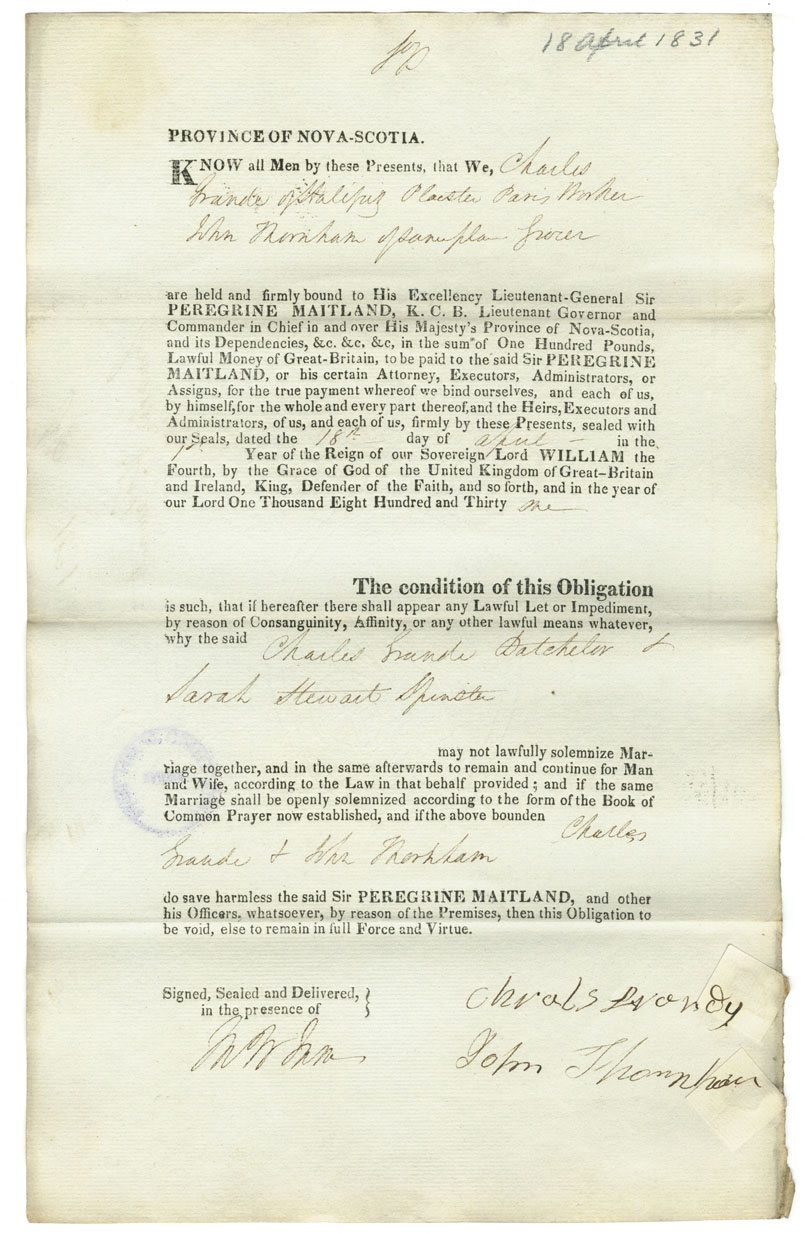 18 April 1831
PROVINCE OF NOVA-SCOTIA.
KNOW all Men by these Presents, that We, Charles
Grande of Halifax Plaester Paris Worker
John Thornham of same place Grocer
are held and firmly bound to His Excellency Lieutenant-General Sir
PEREGRINE MAITLAND, K. C. B. Lieutenant Governor and
Commander in Chief in and over His Majesty's Province of Nova-Scotia,
and its Dependencies, &c. &c. &c, in the sum of One Hundred Pounds,
Lawful Money of Great-Britain, to be paid to the said Sir PEREGRINE
MAITLAND, or his certain Attorney, Executors, Administrators, or
Assigns, for the true payment whereof we bind ourselves, and each of us,
by himself, for the whole and every part thereof, and the Heirs, Executors and
Administrators, of us, and each of us, firmly by these Presents, sealed with
our Seals, dated the 18th day of April in the
1st Year of the Reign of our Sovereign Lord WILLIAM the
Fourth, by the Grace of God of the United Kingdom of Great-Britain
and Ireland, King, Defender of the Faith, and so forth, and in the year of
our Lord One Thousand Eight Hundred and Thirty one
The condition of this Obligation
is such, that if hereafter there shall appear any Lawful Let or Impediment,
by reason of Consanguinity, Affinity, or any other lawful means whatever,
why the said Charles Grande Batchelor &
Sarah Stewart Spinster
may not lawfully solemnize Mar-
riage together, and in the same afterwards to remain and continue for Man
and Wife, according to the Law in that behalf provided; and if the same
Marriage shall be openly solemnized according to the form of the Book of
Common Prayer now established, and if the above bounden Charles
Grande & John Thornham
do save harmless the said Sir PEREGRINE MAITLAND, and other
his Officers, whatsoever, by reason of the Premises, then this Obligation to
be void, else to remain in full Force and Virtue.
Signed, Sealed and Delivered,
in the presence of
Chrols Grondy
John Thornham